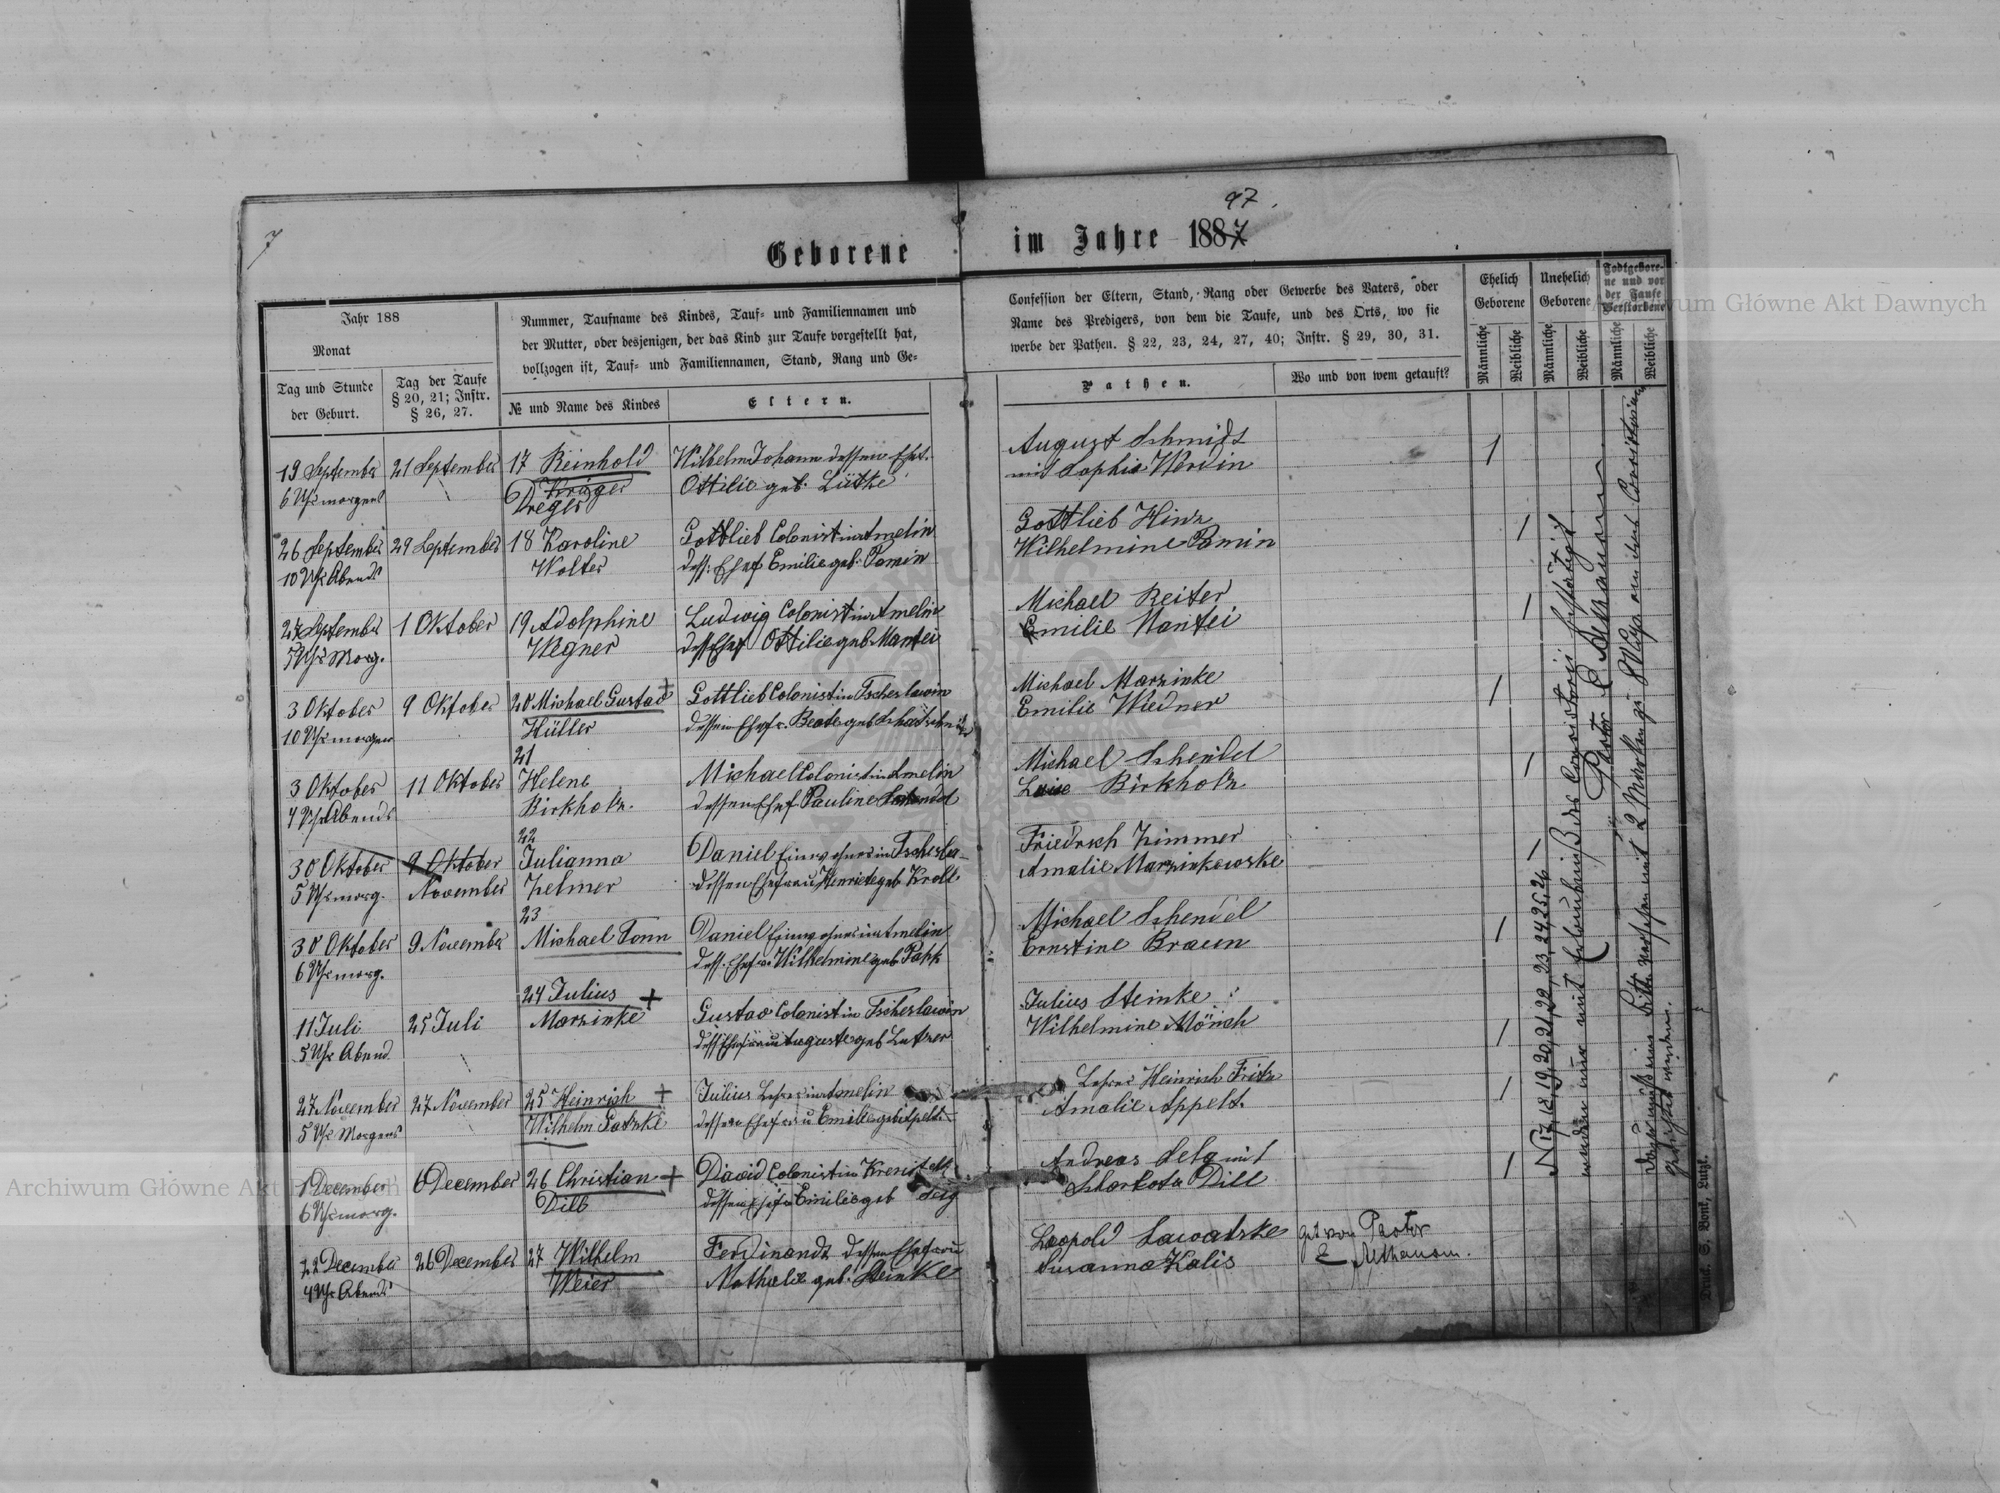 7
97.
Geborene im Jahre 1887
Jahr 188
Monat
Tag und Stunde
der Geburt.
Tag der Taufe
§ 20, 21; Instr.
§ 26, 27.
Nummer, Taufname des Kindes, Tauf- und Familiennamen und
der Mutter, oder desjenigen, der das Kind zur Taufe vorgestellt hat,
vollzogen ist, Tauf- und Familiennamen, Stand, Rang und Ge-
№ und Name des Kindes
Eltern.
Confession der Eltern, Stand, Rang oder Gewerbe des Vaters, oder
Name des Predigers, von dem die Taufe, und des Orts, wo sie
werbe der Pathen. § 22, 23, 24, 27, 40; Instr. § 29, 30, 31.
Pathen.
Wo und von wem getauft?
Ehelich
Geborene
Unehelich
Geborene
Todtgebore-
ne und vor
der Taufe
Verstorbene
Männliche
Weibliche
Männliche
Weibliche
Männliche
Weibliche
19 September 21 September 17 Reinhold Wilhelm Johann dessen Ehef. August Schmidt 1
6 Uhr morgens Krüger Ottilie geb. Lütke mit Sophie Werdin
Dreger
26 September 29 September 18 Karoline Gottlieb Colonist in Amelin Gottlieb Hinz 1
10 Uhr Abends Wolter dess. Ehef Emilie geb. Pomin Wilhelmine Pomin
27 September 1 Oktober 19 Adolphine Ludwig Colonist in Amelin Michael Reiter 1
5 Uhr Morg. Wegner dess Ehef Ottilie geb Mantei Emilie Mantei
3 Oktober 9 Oktober 20 Michael Gustav + Gottlieb Colonist in Tscheslawin Michael Marzinke 1
10 Uhr morgen Hüller dessen Ehefr. Beate geb Emilie Wiedner
21
3 Oktober 11 Oktober Helene Michael Colonist in Amelin Michael Schendel 1
4 Uhr Abends Birkholz. dessen Ehef Pauline Schendel Birkholz
22
30 Oktober 9 Oktober Julianna Daniel Einwohner in Friedrich Zimmer 1
5 Uhr morg. November Zelmer dessen Ehefrau Henriete geb Kroll Amalie Marzinkowske
23
30 Oktober 9 November Michael Tonn Daniel Einwohner in Amelin Michael Schendel 1
6 Uhr morg. dess. Ehefr. Wilhelmine geb Papk Ernstine Braun
24 Julius +
11 Juli 25 Juli Marzinke Gustav Colonist in Tscheslawin Julius Steinke
5 Uhr Abend dess Ehefrau Auguste geb Lutzer Wilhelmine Mönch 1
27 November 27 November 25 Heinrich + Julius Lehrer in Amelin Lehrer Heinrich Fritz 1
5 Uhr Morgens Wilhelm Patzke dessen Ehefrau Emilie geb Appelt Amalie Appelt.
1 December 6 December 26 Christian + David Colonist in Andreas Selg mit 1
6 Uhr morg. Dill dessen Ehefr Emilie geb Selg Scharlota Dill
22 December 26 December 27 Wilhelm Ferdinandt dessen Ehefrau Leopold Sawatzke get von Pastor
4 Uhr Abends Weier Nathalie geb. Steinke Susanna Kalis
N 17, 18, 19, 20, 21, 22, 23, 24, 25, 26
werden nur mit Erlaubniß des Consistorii
Pastor
2
Druck S. Bonk, Lutzk.
Archiwum Główne Akt Dawnych
Archiwum Główne Akt Dawnych